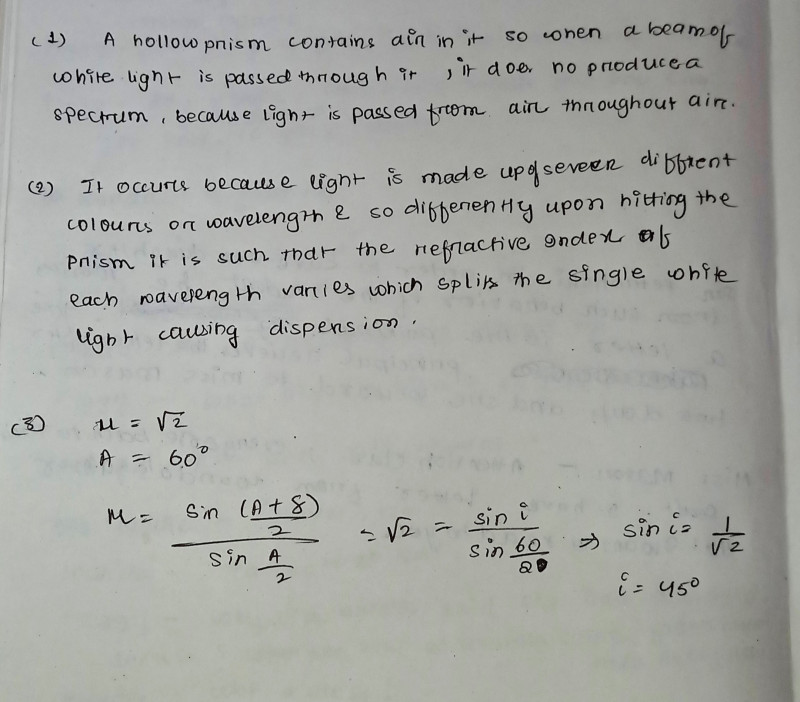 (1) A hollow prism contains air in it so when a beam of
white light is passed through it, it does no produce a
spectrum, because light is passed from air throughout air.
(2) It occurs because light is made up of seveen diffrent
colours or wavelength & so differently upon hitting the
prism it is such that the refractive index of
each wavelength varies which splits the single white
light causing dispension.
(3) μ = √2
A = 60°
μ = sin (A + δ)/2 / sin A/2 = √2 = sin i / sin 60/2 ⇒ sin i = 1/√2
i = 45°